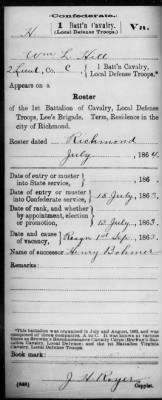 Confederate.
H 1 Batt'n Cavalry, Va.
(Local Defense Troops.)
Wm L. Hill
2 Lieut, Co. C, 1 Batt'n Cavalry,
Local Defense Troops.*
Appears on a
Roster
of the 1st Battalion of Cavalry, Local Defense
Troops, Lee's Brigade. Term, Residence in the
city of Richmond.
Roster dated Richmond
July , 1864.
Date of entry or muster
into State service, , 186 .
Date of entry or muster
into Confederate service, 15 July, 1863.
Date of rank, and whether
by appointment, election
or promotion, 15 July, 1863.
Date and cause
of vacancy, Resgn 1st Sep., 1863.
Name of successor Henry Bohmer
Remarks:
*This battalion was organized in July and August, 1863, and was
composed of three companies, A to C. It was known at various
times as Browne's Reconnoissance Cavalry Corps
Cavalry, Local Defense; and the 1st Battalion Virginia
Cavalry, Local Defense Troops.
Book mark:
J. H. Royer
(646) Copyist.